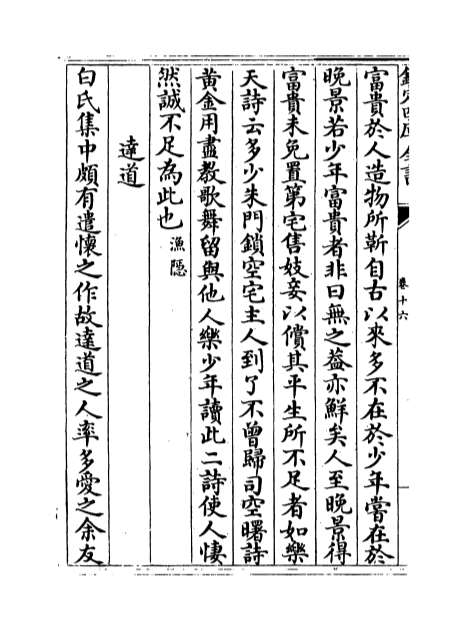 欽定四庫全書
卷十六
富貴於人造物所靳自古以來多不在於少年嘗在於
晚景若少年富貴者非曰無之葢亦鮮矣人至晚景得
富貴未免置第宅售妓妾以償其平生所不足者如樂
天詩云多少朱門鎖空宅主人到了不曾歸司空曙詩
黄金用盡教歌舞留與他人樂少年讀此二詩使人悽
然誠不足為此也漁隱
達道
白氏集中頗有遣懷之作故達道之人率多愛之余友